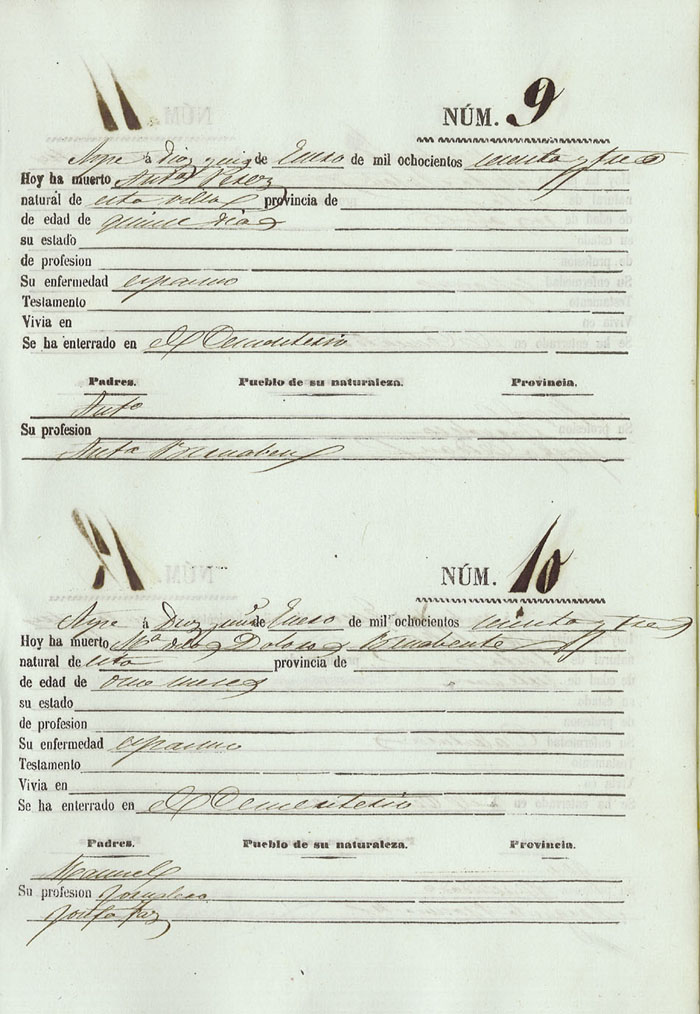 NÚM. 9
á diez y seis de Enero de mil ochocientos cincuenta y tres
Hoy ha muerto Anto Perez
natural de esta villa provincia de
de edad de quince dias
su estado
de profesion
Su enfermedad espasmo
Testamento
Vivia en
Se ha enterrado en el Cementerio
Padres. Pueblo de su naturaleza. Provincia.
Anto
Su profesion
Anta Benabent
NÚM. 10
á Diez de Enero de mil ochocientos y tres
Hoy ha muerto Mª de los Dolores Benabente
natural de esta provincia de
de edad de once meses
su estado
de profesion
Su enfermedad espasmo
Testamento
Vivia en
Se ha enterrado en el Cementerio
Padres. Pueblo de su naturaleza. Provincia.
Manuel
Su profesion Jornalero
Josefa Paz